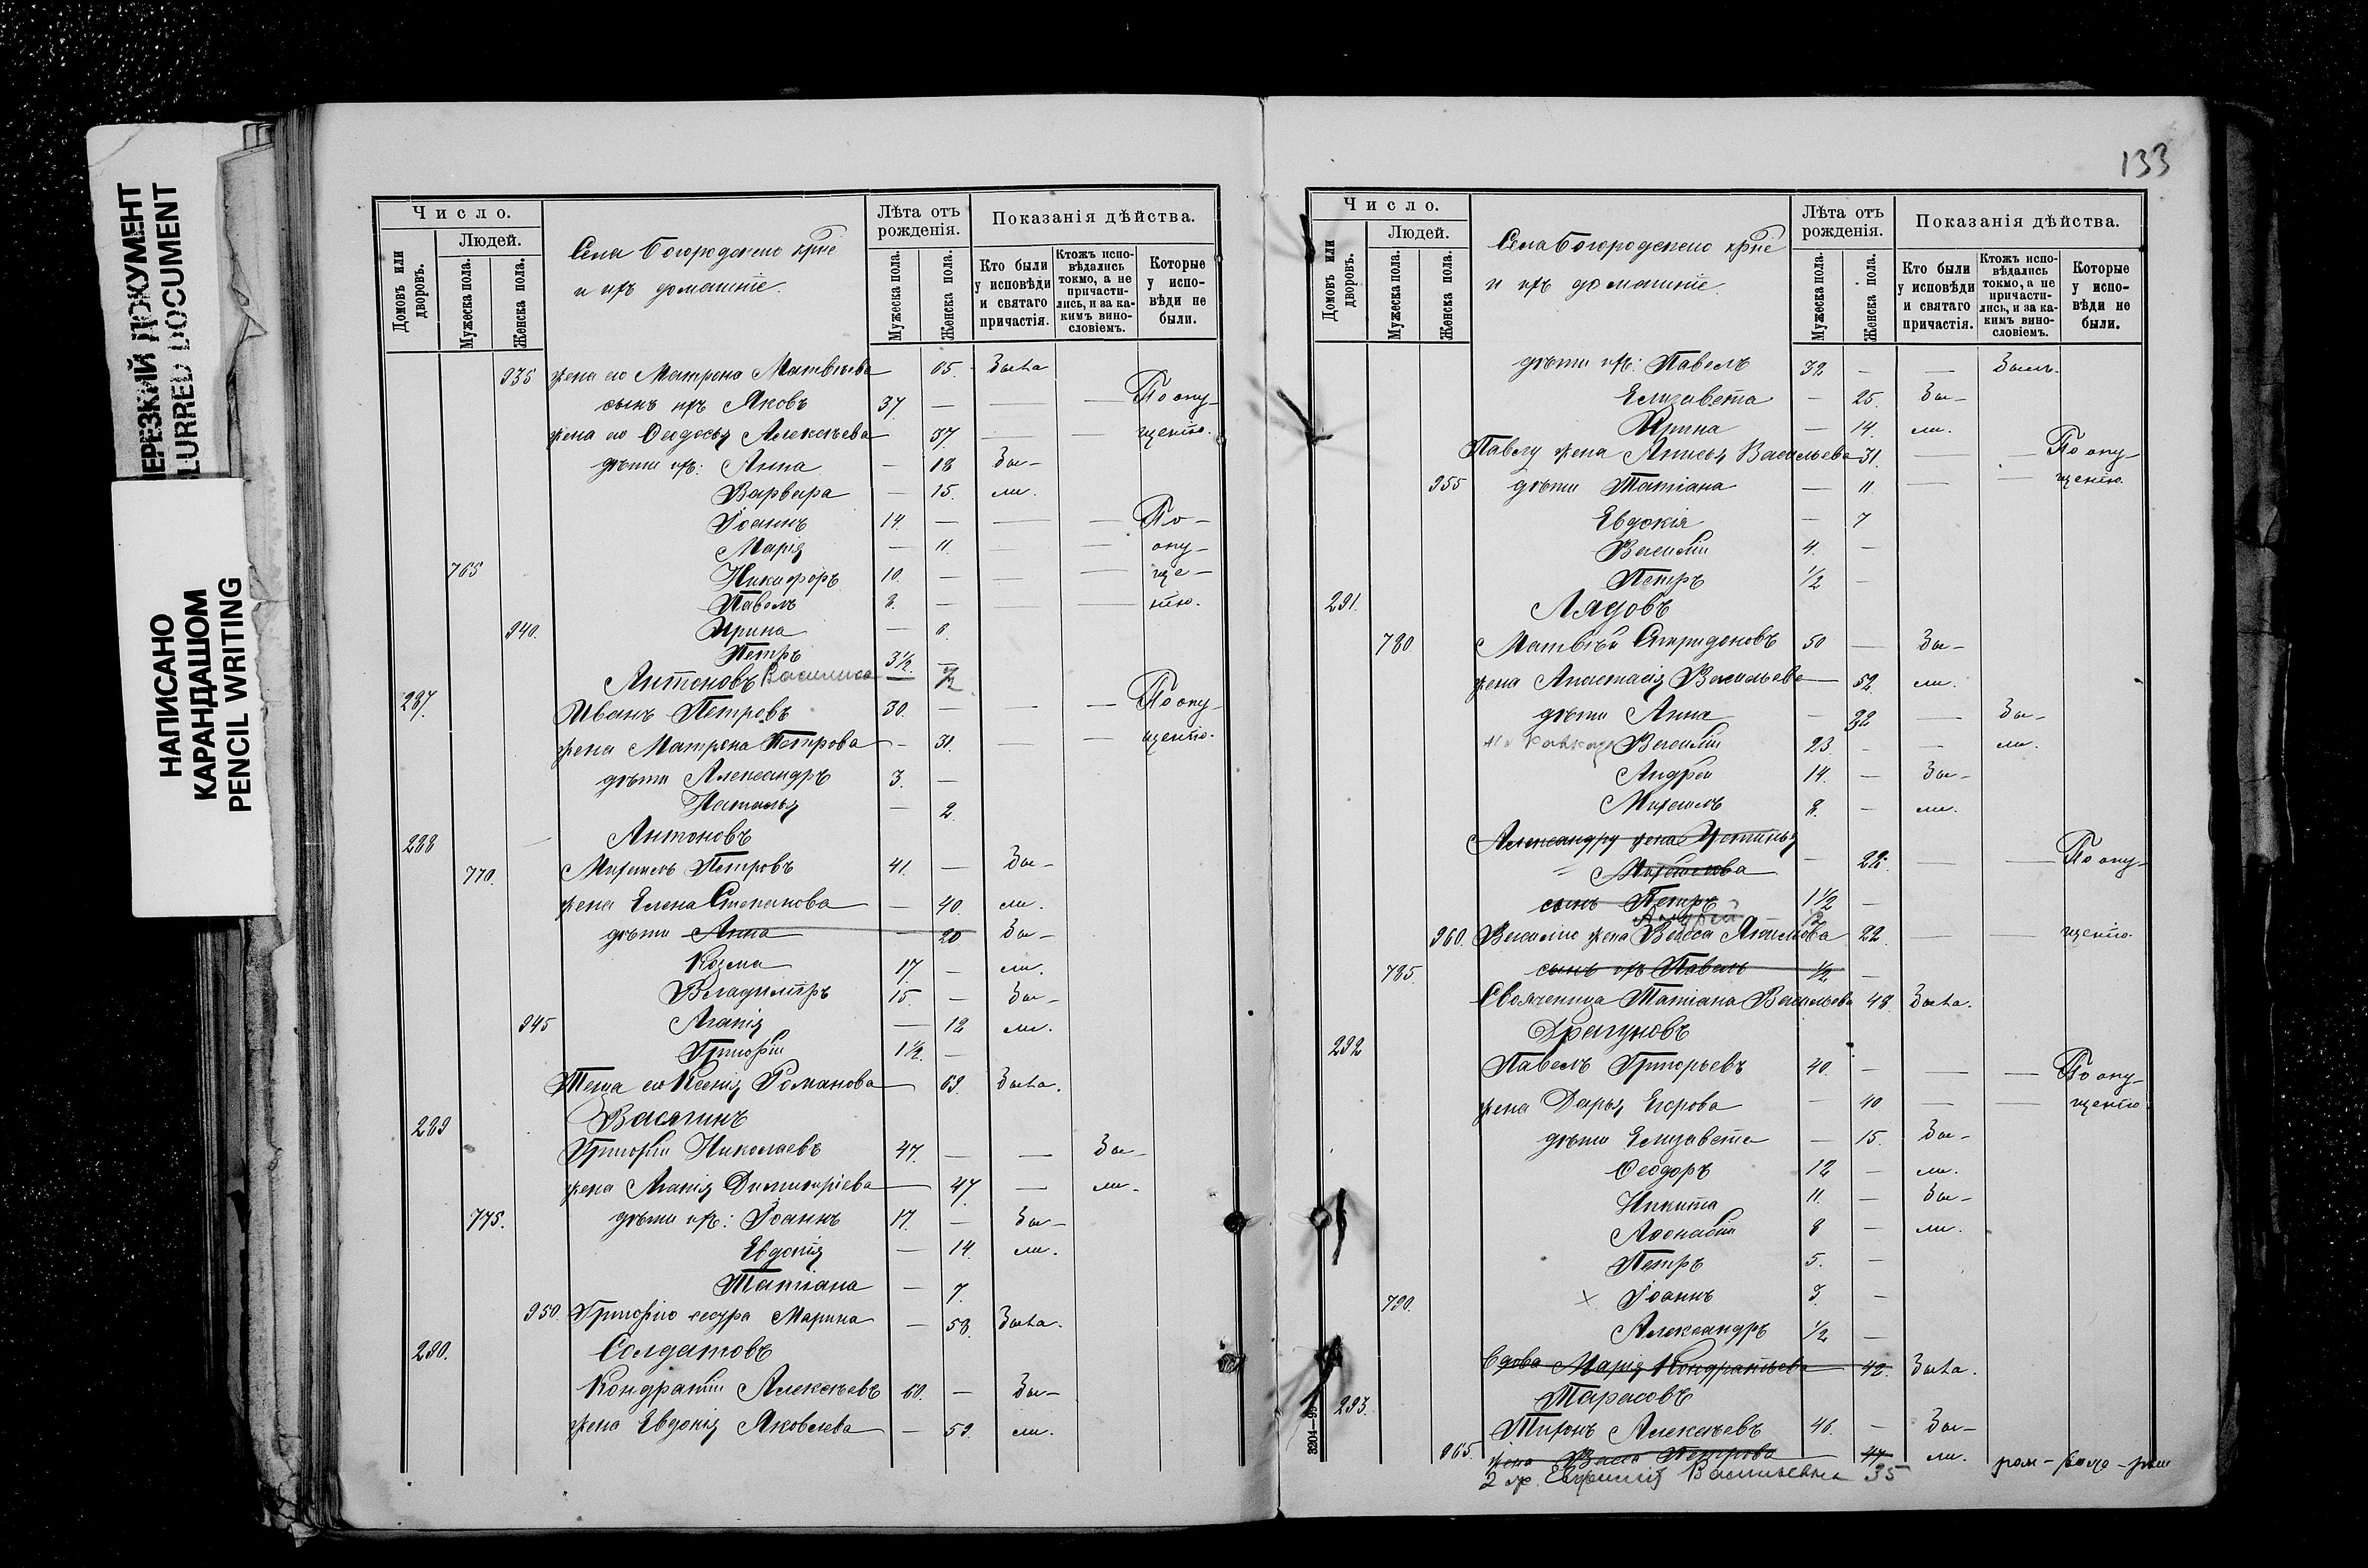 НЕРЕЗКИЙ ДОКУМЕНТ
BLURRED DOCUMENT
НАПИСАНО
КАРАНДАШОМ
PENCIL WRITING
Число.
Людей.
Домовъ или дворовъ.
Мужеска пола.
Женска пола.
Села Богородскаго крне
и ихъ домашніе.
Лѣта отъ рожденія.
Мужеска пола.
Женска пола.
Показанія дѣйства.
Кто были у исповѣди и святаго причастія.
Ктожъ исповѣдались токмо, а не причастились, и за какимъ винословіемъ.
Которые у исповѣди не были.
935 жена его Матрона Матвѣева 65. Была
сынъ ихъ Яковъ 37. — — — По опу-
жена его Ѳеодосья Алексѣева 37 — — щенію.
дѣти ихъ: Анна — 18 Бы-
Варвара — 15. ли.
Іоаннъ 14. — — — По-
Марія — 11. — — опу-
765 Никифоръ 10. — — — ще-
Павелъ 8. — — нію.
940. Ирина — 6.
Петръ 3½ —
Антоновъ Василиса ½
287. Иванъ Петровъ 30. — — — По опу-
жена Матрона Петрова — 31. — — щенію.
дѣти Александръ 3. —
Наталья — 2.
288 Антоновъ
770. Михаилъ Петровъ 41. — Бы-
жена Елена Степанова — 40. ли.
дѣти Анна — 20 Бы-
Козма 17. — ли.
Владиміръ 15. — Бы-
945 Агапія — 12 ли.
Григорій 1½. —
Теща его Ксенія Романова 69. Была.
289 Васягинъ
Григорій Николаевъ 47. — — Бы-
жена Агапія Димитріева — 47 — ли.
775. дѣти ихъ: Іоаннъ 17. — Бы-
Евдокія — 14. ли.
Татіана — 7.
950. Григорію сестра Марина — 58. Была.
290. Солдатовъ
Кондратій Алексѣевъ 60. — Бы-
жена Евдокія Яковлева — 59. ли.
133
Число.
Людей.
Домовъ или дворовъ.
Мужеска пола.
Женска пола.
Села Богородскаго крне
и ихъ домашніе.
Лѣта отъ рожденія.
Мужеска пола.
Женска пола.
Показанія дѣйства.
Кто были у исповѣди и святаго причастія.
Ктожъ исповѣдались токмо, а не причастились, и за какимъ винословіемъ.
Которые у исповѣди не были.
дѣти ихъ: Павелъ 32 — — Былъ.
Елизавета — 25. Бы-
Ирина — 14. ли.
Павлу жена Анисья Васильева 31. — — По опу-
955 дѣти Татіана — 11. — — щенію.
Евдокія — 7
Василій 4. —
Петръ ½ —
291. Лядовъ
780. Матвѣй Спиридоновъ 50 — Бы-
жена Анастасія Васильева 52. ли.
дѣти Анна — 22 — Бы-
Василій 23. — — ли.
Андрей 14. — Бы-
Михаилъ 8. — ли.
Александру жена Устинья
Михайлова — 22. — — По опу-
сынъ Петръ 1½ —
Андрей ½
960. Василію жена Васса Якимова 22. — — щенію.
785 сынъ ихъ Павелъ ½ —
Свояченица Татіана Васильева 48. Была.
292 Драгуновъ
Павелъ Григорьевъ 40. — — — По опу-
жена Дарья Егорова — 40 — — щенію.
дѣти Елизавета — 15. Бы-
Ѳеодоръ 12 — ли.
Никита 11. — Бы-
Аѳонасій 8 — ли.
Петръ 5. —
790. х Іоаннъ 3. —
Александръ ½ —
вдова Марія Кондратьева 42. Была.
293. Тарасовъ
Тихонъ Алексѣевъ 46. — Бы-
965. жена Васса Петрова 47 ли.
2 ж. Евфимія Васильевна 35
3204—99